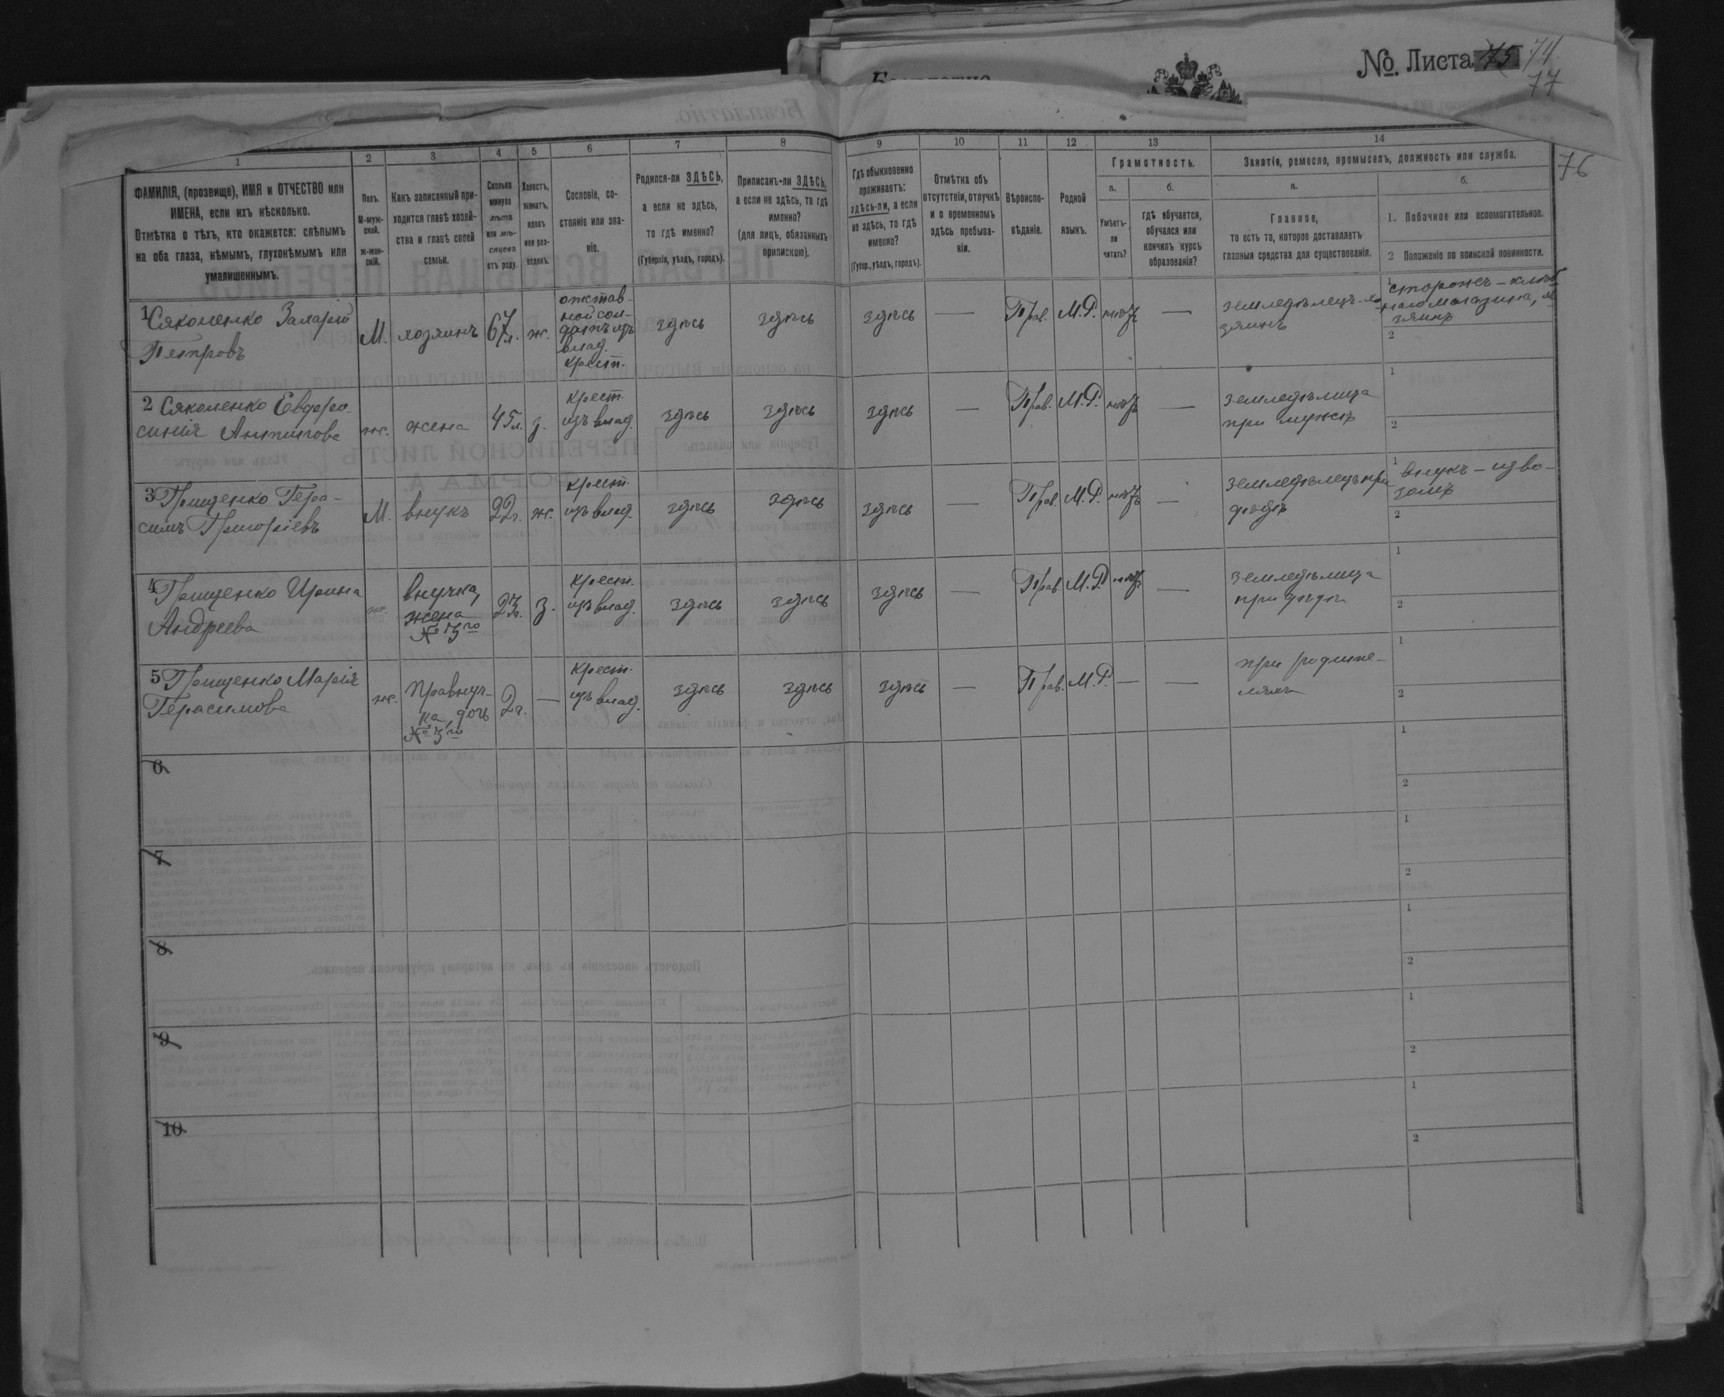 № Листа 75 74
77
76
1
2
3
4
5
6
7
8
9
10
11
12
13
14
ФАМИЛІЯ, (прозвище), ИМЯ и ОТЧЕСТВО или
ИМЕНА, если ихъ нѣсколько.
Отмѣтка о тѣхъ, кто окажется: слѣпымъ
на оба глаза, нѣмымъ, глухонѣмымъ или
умалишеннымъ.
Полъ.
М-муж-
ской.
Ж-жен-
скій.
Какъ записанный при-
ходится главѣ хозяй-
ства и главѣ своей
семьи.
Сколько
минуло
лѣтъ
или мѣ-
сяцевъ
отъ роду.
Холостъ,
женатъ,
вдовъ
или раз-
веденъ.
Сословіе, со-
стояніе или зва-
ніе.
Родился-ли ЗДѢСЬ,
а если не здѣсь,
то гдѣ именно?
(Губернія, уѣздъ, городъ).
Приписанъ-ли ЗДѢСЬ,
а если не здѣсь, то гдѣ
именно?
(для лицъ, обязанныхъ
припискою).
Гдѣ обыкновенно
проживаетъ:
здѣсь-ли, а если
не здѣсь, то гдѣ
именно?
(Губер., уѣздъ, городъ).
Отмѣтка объ
отсутствіи, отлучкѣ
и о временномъ
здѣсь пребыва-
ніи.
Вѣроиспо-
вѣданіе.
Родной
языкъ.
Грамотность.
а.
б.
Умѣетъ-
ли
читать?
гдѣ обучается,
обучался или
кончилъ курсъ
образованія?
Занятія, ремесло, промыселъ, должность или служба.
а.
б.
Главное,
то есть то, которое доставляетъ
главныя средства для существованія.
1. Побочное или вспомогательное.
2 Положеніе по воинской повинности.
1 Сяколенко
Петровъ
М. хозяинъ 67 л. ж.
отстав-
ной сол-
датъ изъ
влад.
крест.
здѣсь здѣсь здѣсь — Прав. М.Р. нѣтъ —
земледѣлецъ-хо
зяинъ
1 сторожъ
2
2 Сяколенко Евфро-
синія Антипова
ж. жена 45 л. з.
крест.
изъ влад.
здѣсь здѣсь здѣсь — Прав. М.Р. нѣтъ —
земледѣлица
при мужѣ
1
2
3 Грищенко Гера-
симъ Григоріевъ
М. внукъ 22 г. ж.
крест.
изъ влад.
здѣсь здѣсь здѣсь — Прав. М.Р. нѣтъ —
земледѣлецъ при
дѣдѣ
1 внукъ - изво-
зомъ
2
4 Грищенко Ирина
Андреева
жен.
внучка,
жена
№ 3го
23 г. з.
крест.
изъ влад.
здѣсь здѣсь здѣсь — Прав. М.Р. нѣтъ —
земледѣлица
при дѣдѣ
1
2
5 Грищенко Марія
Герасимова
ж.
правнуч-
ка, дочь
№ 3го
2 г. —
крест.
изъ влад.
здѣсь здѣсь здѣсь — Прав. М.Р. — —
при родите-
ляхъ
1
2
6
1
2
7
1
2
8
1
2
9
1
2
10
1
2